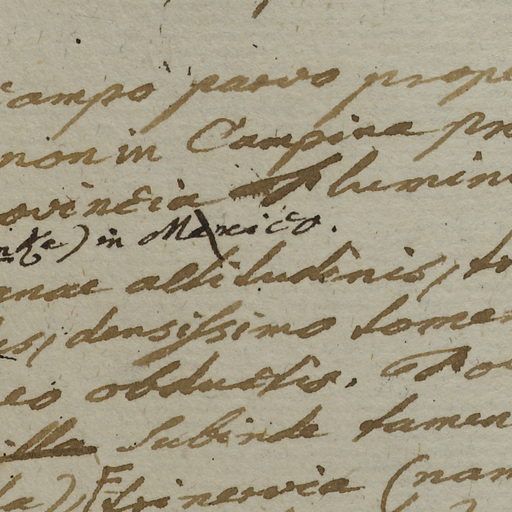 campo parvo prope
non in Campina pr
ovincia Flumin
) in Mexico.
altitudinis,
densissimo tomen
obductis.
illa subinde tamen
trinervia (nam